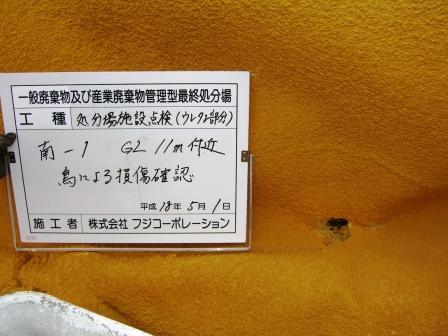 一般廃棄物及び産業廃棄物管理型最終処分場
工種 処分場施設点検(ウレタン部分)
南-1 GL 11m付近
鳥による損傷確認
平成18年5月1日
施工者 株式会社 フジコーポレーション